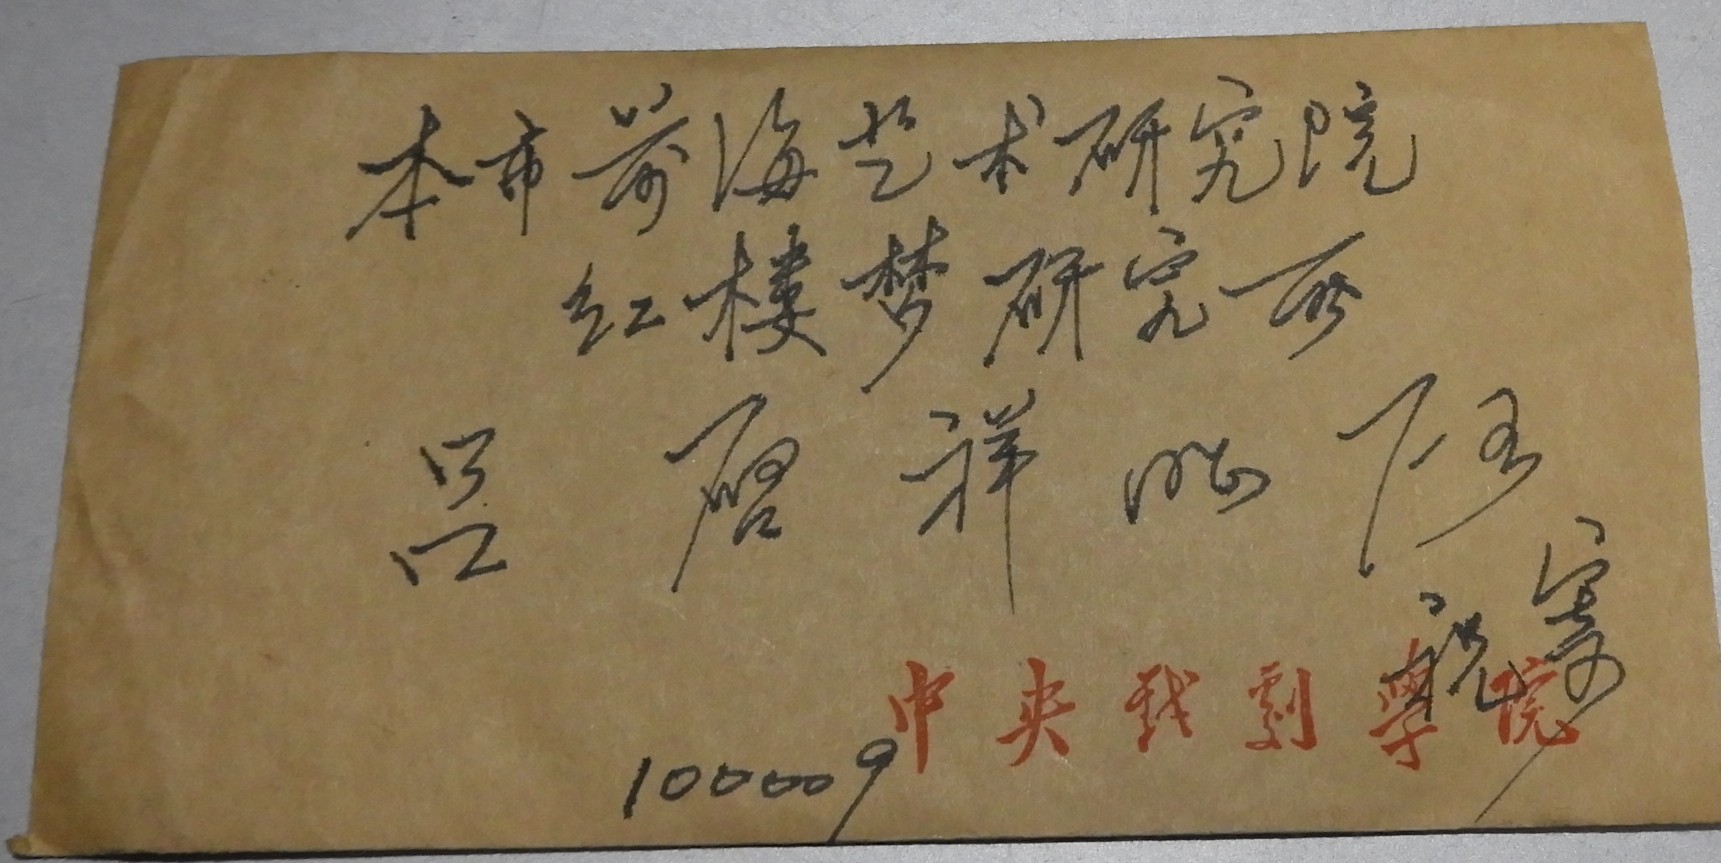 本市前海艺术研究院
红楼梦研究所
吕启祥
祝寄
中央戏剧学院
100009